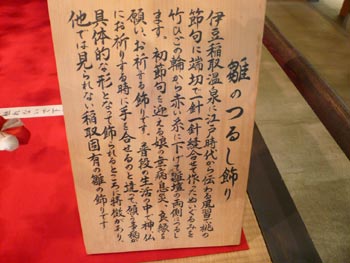 雛のつるし飾り
伊豆稲取温泉で江戸時代から伝わる風習で、桃の
節句に端切で一針一針縫合せて作ったぬいぐるみを
竹ひごの輪から赤い糸に下げて雛壇の両側につるし
ます。初節句を迎える娘の無病息災、良縁を
願い、お祈りする飾りです。普段の生活の中で神仏
にお祈りする時に手を合せるのと違って、願う事柄が
具体的な形となって飾られるところに特徴があり、
他では見られない稲取固有の雛の飾りです